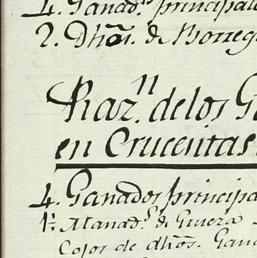 4. Ganad.^s principale
2. Dhõs. de Borreg
Raz.ⁿ de los G
en Crucentas
4. Ganados principa
1.ª Manad.^s de Guera
Cojos de dhõs. Gana